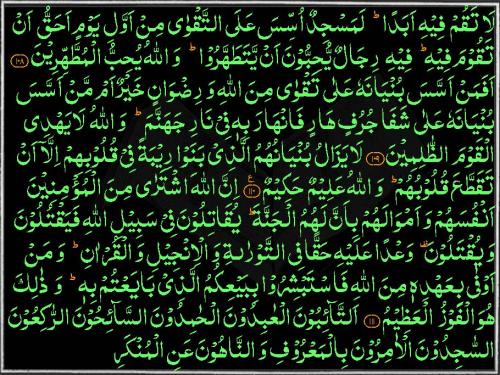 لَا تَقُمْ فِيْهِ اَبَدًا ؕ لَمَسْجِدٌ اُسِّسَ عَلَى التَّقْوٰى مِنْ اَوَّلِ يَوْمٍ اَحَقُّ اَنْ
تَقُوْمَ فِيْهِ ؕ فِيْهِ رِجَالٌ يُّحِبُّوْنَ اَنْ يَّتَطَهَّرُوْا ؕ وَ اللّٰهُ يُحِبُّ الْمُطَّهِّرِيْنَ ۝۱۰۸
اَفَمَنْ اَسَّسَ بُنْيَانَهٗ عَلٰى تَقْوٰى مِنَ اللّٰهِ وَ رِضْوَانٍ خَيْرٌ اَمْ مَّنْ اَسَّسَ
بُنْيَانَهٗ عَلٰى شَفَا جُرُفٍ هَارٍ فَانْهَارَ بِهٖ فِيْ نَارِ جَهَنَّمَ ؕ وَ اللّٰهُ لَا يَهْدِى
الْقَوْمَ الظّٰلِمِيْنَ ۝۱۰۹ لَا يَزَالُ بُنْيَانُهُمُ الَّذِىْ بَنَوْا رِيْبَةً فِىْ قُلُوْبِهِمْ اِلَّاۤ اَنْ
تَقَطَّعَ قُلُوْبُهُمْ ؕ وَ اللّٰهُ عَلِيْمٌ حَكِيْمٌ ۝۱۱۰ ع اِنَّ اللّٰهَ اشْتَرٰى مِنَ الْمُؤْمِنِيْنَ
اَنْفُسَهُمْ وَ اَمْوَالَهُمْ بِاَنَّ لَهُمُ الْجَنَّةَ ؕ يُقَاتِلُوْنَ فِىْ سَبِيْلِ اللّٰهِ فَيَقْتُلُوْنَ
وَ يُقْتَلُوْنَ وَعْدًا عَلَيْهِ حَقًّا فِى التَّوْرٰىةِ وَ الْاِنْجِيْلِ وَ الْقُرْاٰنِ ؕ وَ مَنْ
اَوْفٰى بِعَهْدِهٖ مِنَ اللّٰهِ فَاسْتَبْشِرُوْا بِبَيْعِكُمُ الَّذِىْ بَايَعْتُمْ بِهٖ ؕ وَ ذٰلِكَ
هُوَ الْفَوْزُ الْعَظِيْمُ ۝۱۱۱ اَلتَّآئِبُوْنَ الْعٰبِدُوْنَ الْحٰمِدُوْنَ السَّآئِحُوْنَ الرّٰكِعُوْنَ
السّٰجِدُوْنَ الْاٰمِرُوْنَ بِالْمَعْرُوْفِ وَ النَّاهُوْنَ عَنِ الْمُنْكَرِ